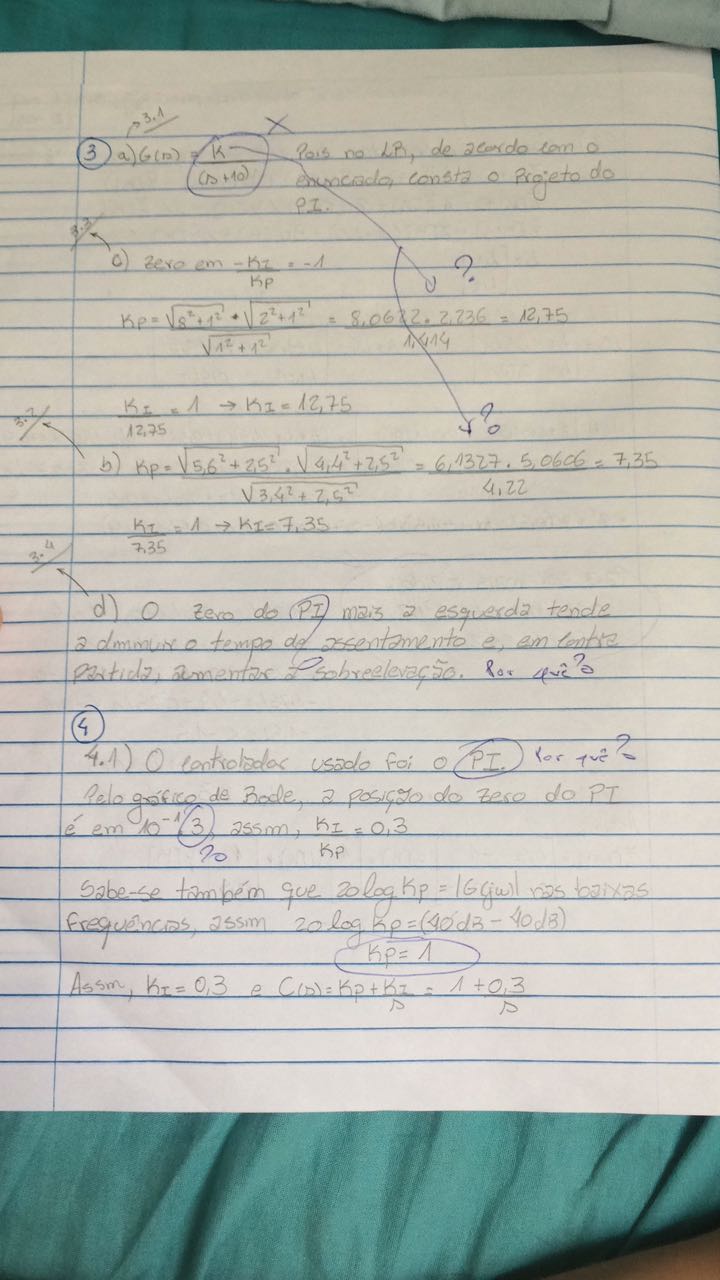 3.1
③ a) G(s) = K/(s+10) X Pois no LR, de acordo com o
enunciado, consta o Projeto do
PI.
3.3
c) Zero em -KI/KP = -1 ?
KP = √(8²+1²) * √(2²+1²) / √(1²+1²) = 8,0622 . 2,236 / 1,414 = 12,75
KI/12,75 = 1 → KI = 12,75
3.2 ?
b) KP = √(5,6²+2,5²) . √(4,4²+2,5²) / √(3,4²+2,5²) = 6,1327 . 5,0606 / 4,22 = 7,35
KI/7,35 = 1 → KI = 7,35
3.4
d) O zero do PI mais a esquerda tende
a diminuir o tempo de assentamento e, em contra
partida, aumentar a sobreelevação. Por quê?
④
4.1) O controlador usado foi o PI. Por quê?
Pelo gráfico de Bode, a posição do zero do PI
é em 10⁻¹ 3, assim, KI/KP = 0,3
?
Sabe-se também que 20logKp = |G(jw)| nas baixas
frequências, assim 20logKp = (40dB - 40dB)
Kp = 1
Assim, KI = 0,3 e C(s) = KP + KI/s = 1 + 0,3/s